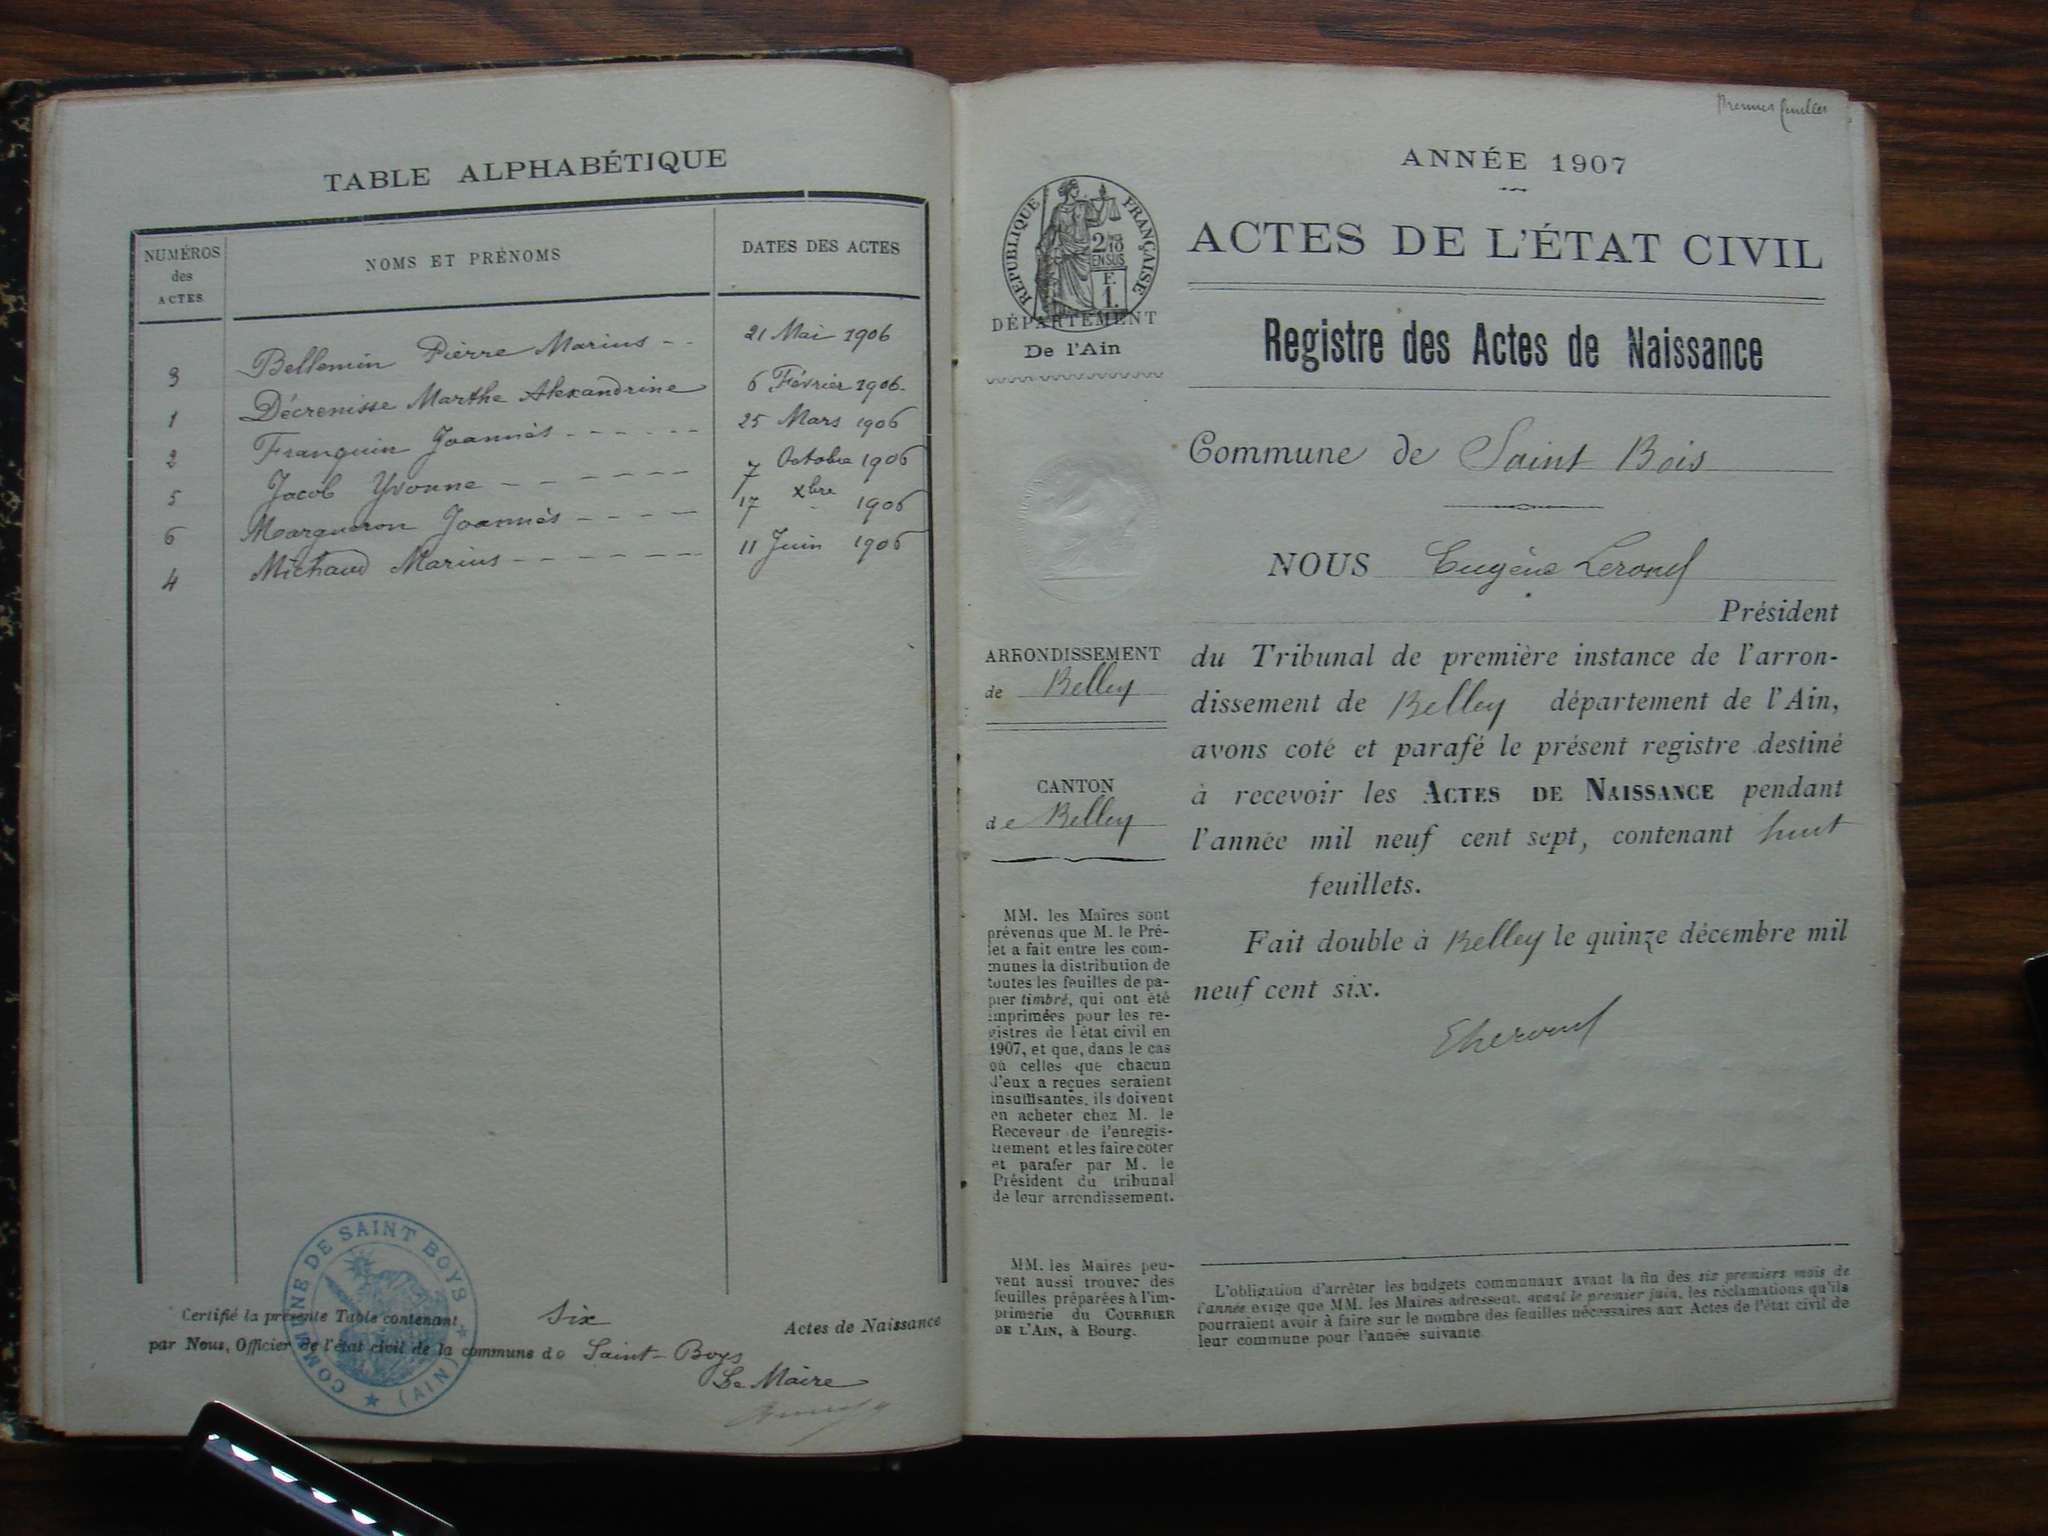 TABLE ALPHABÉTIQUE
NUMÉROS des ACTES
NOMS ET PRÉNOMS
DATES DES ACTES
3 Bellemin Pierre Marius - - 21 Mai 1906
1 Décrenisse Marthe Alexandrine 6 Février 1906.
2 Franquin Joannès - - - - - - 25 Mars 1906
5 Jacob Yvonne - - - - - - 7 Octobre 1906
6 Margueron Joannès - - - - 17 xbre 1906
4 Michaud Marius - - - - - - - 11 Juin 1906
COMMUNE DE SAINT BOYS (AIN)
Certifié la présente Table contenant six Actes de Naissance
par Nous, Officier de l'état civil de la commune de Saint-Boys
Le Maire
Premier feuillet
ANNÉE 1907
RÉPUBLIQUE FRANÇAISE
2/10
EN SUS
F.
1.
DÉPARTEMENT
De l'Ain
ACTES DE L'ÉTAT CIVIL
Registre des Actes de Naissance
Commune de Saint Bois
NOUS Eugène
Président
du Tribunal de première instance de l'arron-
dissement de Belley département de l'Ain,
avons coté et parafé le présent registre destiné
à recevoir les ACTES DE NAISSANCE pendant
l'année mil neuf cent sept, contenant huit
feuillets.
Fait double à Belley le quinze décembre mil
neuf cent six.
ARRONDISSEMENT
de Belley
CANTON
de Belley
MM. les Maires sont
prévenus que M. le Pré-
fet a fait entre les com-
munes la distribution de
toutes les feuilles de pa-
pier timbré, qui ont été
imprimées pour les re-
gistres de l'état civil en
1907, et que, dans le cas
où celles que chacun
d'eux a reçues seraient
insuffisantes, ils doivent
en acheter chez M. le
Receveur de l'enregis-
trement et les faire coter
et parafer par M. le
Président du tribunal
de leur arrondissement.
MM. les Maires peu-
vent aussi trouver des
feuilles préparées à l'im-
primerie du COURRIER
DE L'AIN, à Bourg.
L'obligation d'arrêter les budgets communaux avant la fin des six premiers mois de
l'année exige que MM. les Maires adressent, avant le premier juin, les réclamations qu'ils
pourraient avoir à faire sur le nombre des feuilles nécessaires aux Actes de l'état civil de
leur commune pour l'année suivante.